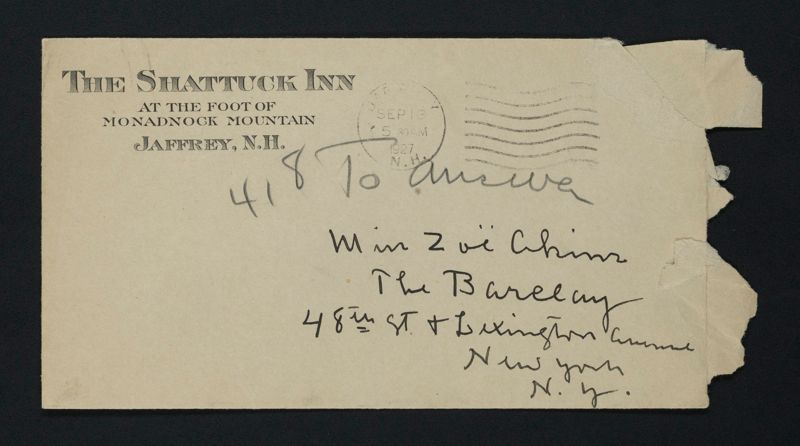 THE SHATTUCK INN
AT THE FOOT OF
MONADNOCK MOUNTAIN
JAFFREY, N.H.
SEP 13
5 30 AM
1927
N.H.
418 To answer
Miss Zoë Akins
The Barclay
48th St. & Lexington Avenue
New York
N. Y.